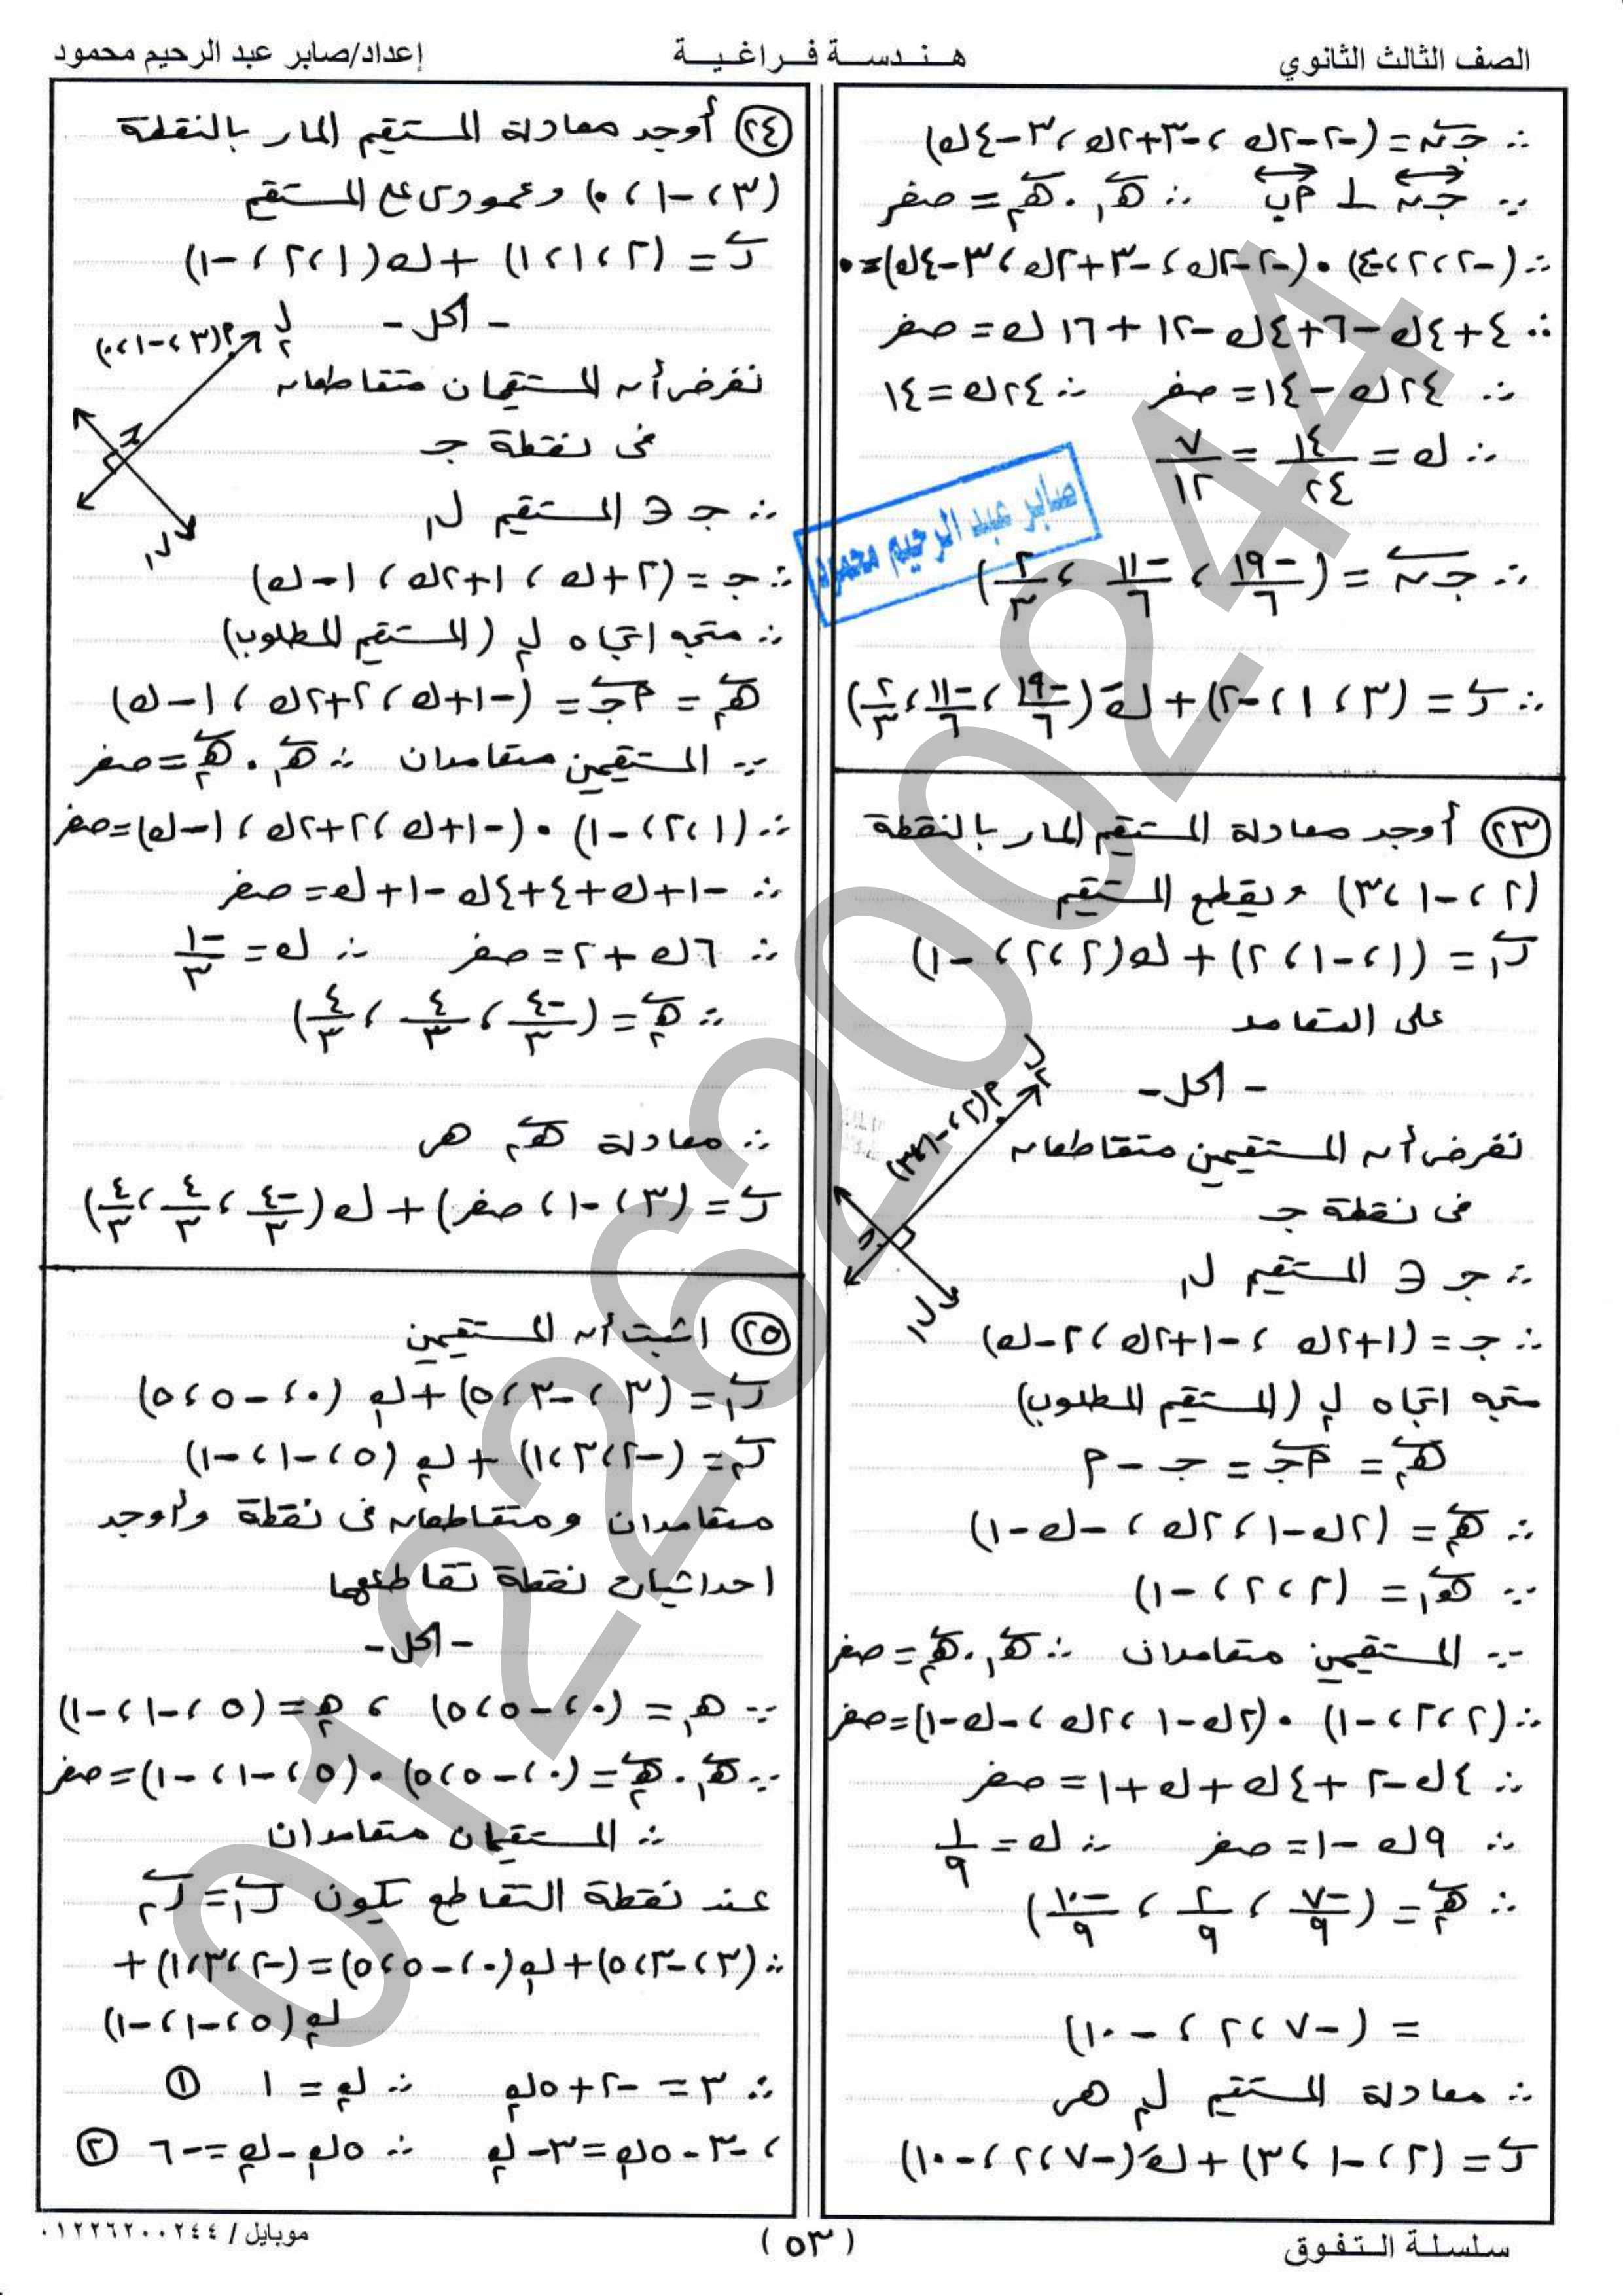 الصف الثالث الثانوي
هـنـدسـة فـراغـيـة
إعداد/صابر عبد الرحيم محمود
∴ جـ ن = (-٢-٢ك ، -٣+٢ك ، ٣-٤ك)
∵ جـ ن ⊥ أ ب ∴ هـ١ . هـ٢ = صفر
∴ (-٢، ٢، -٤) • (-٢-٢ك ، -٣+٢ك ، ٣-٤ك) = ٠
∴ ٤+٤ك-٦+٤ك-١٢+١٦ك = صفر
∴ ٢٤ك-١٤ = صفر ∴ ٢٤ك = ١٤
∴ ك = ١٤/٢٤ = ٧/١٢
∴ جـ ن = (-١٩/٦ ، -١١/٦ ، ٢/٣)
∴ ر = (٣، ١، -٢) + كَ(-١٩/٦ ، -١١/٦ ، ٢/٣)
صابر عبد الرحيم محمود
(٢٣) أوجد معادلة المستقيم المار بالنقطة
(٢، -١، ٣) ويقطع المستقيم
ر١ = (١، -١، ٢) + ك(٢، ٢، -١)
على التعامد
- الحل -
نفرض أن المستقيمين متقاطعان
فى نقطة جـ
أ(٢، -١، ٣)
ل٢
جـ
ل١
∴ جـ ∋ المستقيم ل١
∴ جـ = (١+٢ك ، -١+٢ك ، ٢-ك)
متجه اتجاه ل٢ (المستقيم المطلوب)
هـ٢ = أجـ = جـ - أ
∴ هـ٢ = (٢ك-١ ، ٢ك ، -ك-١)
∵ هـ١ = (٢، ٢، -١)
∵ المستقيمين متعامدان ∴ هـ١ . هـ٢ = صفر
∴ (٢، ٢، -١) • (٢ك-١ ، ٢ك ، -ك-١) = صفر
∴ ٤ك-٢+٤ك+ك+١ = صفر
∴ ٩ك-١ = صفر ∴ ك = ١/٩
∴ هـ٢ = (-٧/٩ ، ٢/٩ ، -١٠/٩)
= (-٧، ٢، -١٠)
∴ معادلة المستقيم ل٢ هى
ر = (٢، -١، ٣) + كَ(-٧، ٢، -١٠)
(٢٤) أوجد معادلة المستقيم المار بالنقطة
(٣، -١، ٠) وعمودى على المستقيم
ر = (٢، ١، ١) + ك(١، ٢، -١)
- الحل -
أ(٣، -١، ٠)
ل٢
جـ
ل١
نفرض أن المستقيمان متقاطعان
فى نقطة جـ
∴ جـ ∋ المستقيم ل١
∴ جـ = (٢+ك ، ١+٢ك ، ١-ك)
∴ متجه اتجاه ل٢ (المستقيم المطلوب)
هـ٢ = أجـ = (-١+ك ، ٢+٢ك ، ١-ك)
∵ المستقيمين متعامدان ∴ هـ١ . هـ٢ = صفر
∴ (١، ٢، -١) • (-١+ك ، ٢+٢ك ، ١-ك) = صفر
∴ -١+ك+٤+٤ك-١+ك = صفر
∴ ٦ك+٢ = صفر ∴ ك = -١/٣
∴ هـ٢ = (-٤/٣ ، ٤/٣ ، ٤/٣)
∴ معادلة هـ٢ هى
ر = (٣، -١، صفر) + ك(-٤/٣ ، ٤/٣ ، ٤/٣)
(٢٥) اثبت أن المستقيمين
ر١ = (٣، -٣، ٥) + ك١(٠، -٥، ٥)
ر٢ = (-٢، ٣، ١) + ك٢(٥، -١، -١)
متعامدان ومتقاطعان فى نقطة وأوجد
احداثيات نقطة تقاطعهما
- الحل -
∵ هـ١ = (٠، -٥، ٥) ، هـ٢ = (٥، -١، -١)
∵ هـ١ . هـ٢ = (٠، -٥، ٥) • (٥، -١، -١) = صفر
∴ المستقيمان متعامدان
عند نقطة التقاطع يكون ر١ = ر٢
∴ (٣، -٣، ٥) + ك١(٠، -٥، ٥) = (-٢، ٣، ١) +
ك٢(٥، -١، -١)
∴ ٣ = -٢+٥ك٢ ∴ ك٢ = ١ (١)
، -٣-٥ك١ = ٣-ك٢ ∴ ٥ك١-ك٢ = -٦ (٢)
سلسلة التفوق
(٥٣)
موبايل / ٠١٢٢٦٢٠٠٢٤٤
01226200244